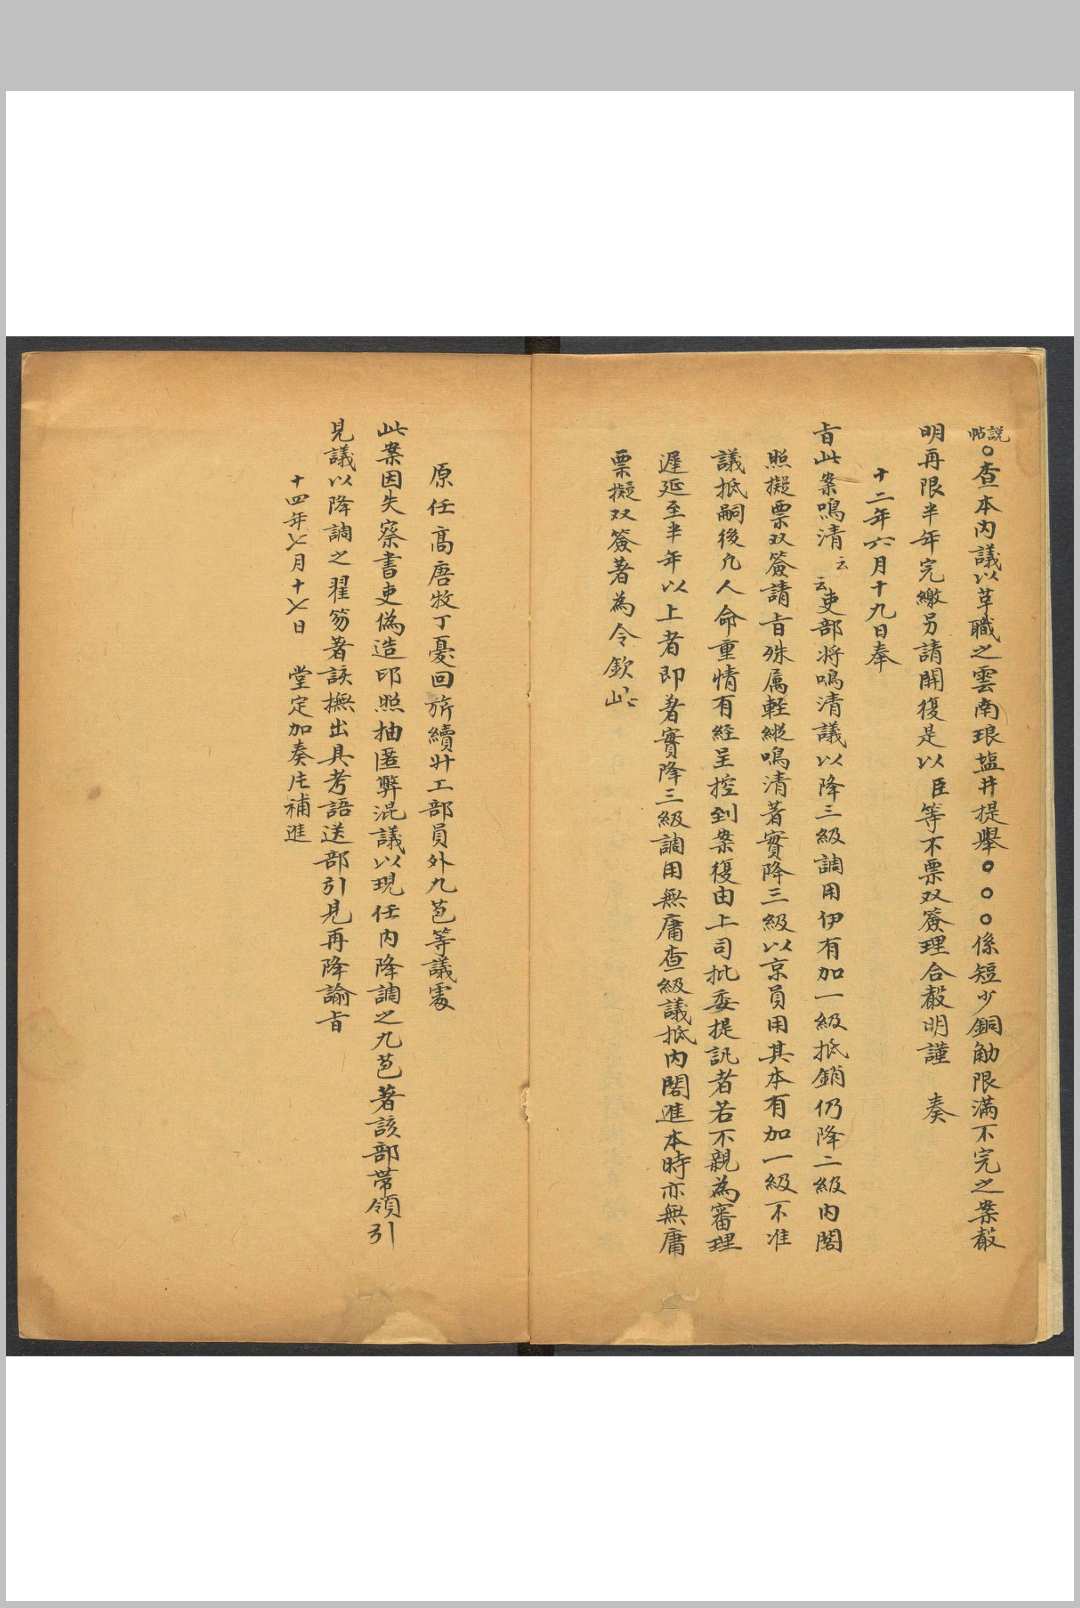 説帖○查本内議以革職之雲南琅塩井提舉○○○係短少銅觔限滿不完之案聲
明再限半年完繳另請開復是以臣等不票双簽理合聲明謹 奏
十二年六月十九日奉
旨此案鳴清云云吏部將鳴清議以降三級調用伊有加一級抵銷仍降二級内閣
照擬票双簽請旨殊属軽縦鳴清著實降三級以京員用其本有加一級不准
議抵嗣後凡人命重情有經呈控到案復由上司批委提訊者若不親為審理
遲延至半年以上者即著實降三級調用無庸查級議抵内閣進本時亦無庸
票擬双簽著為令欽此
原任高唐牧丁憂回旂續升工部員外九芭等議處
此案因失察書吏偽造印照抽匿弊混議以現任内降調之九芭著該部帶領引
見議以降調之翟笏著該撫出具考語送部引見再降諭旨
十四年七月十七日 堂定加奏片補進